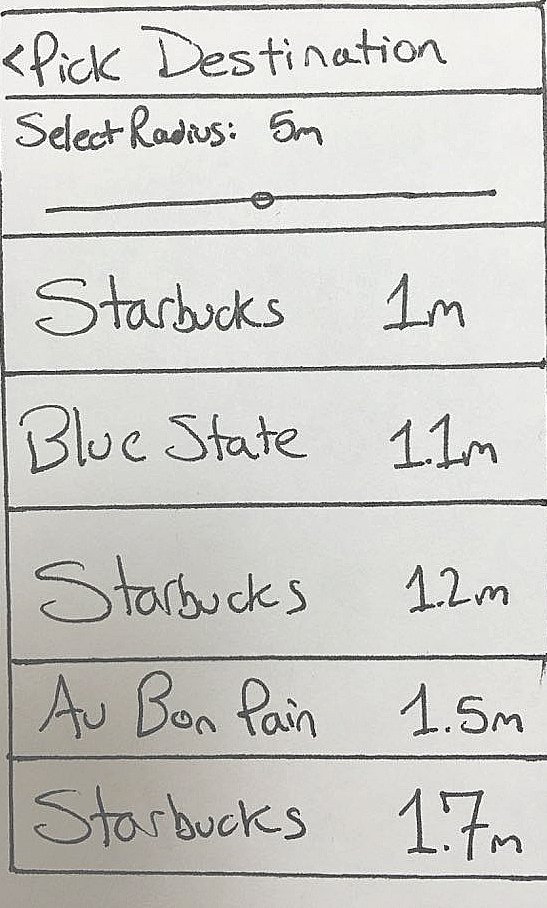 <Pick Destination
Select Radius: 5m
Starbucks 1m
Blue State 1.1m
Starbucks 1.2m
Au Bon Pain 1.5m
Starbucks 1.7m